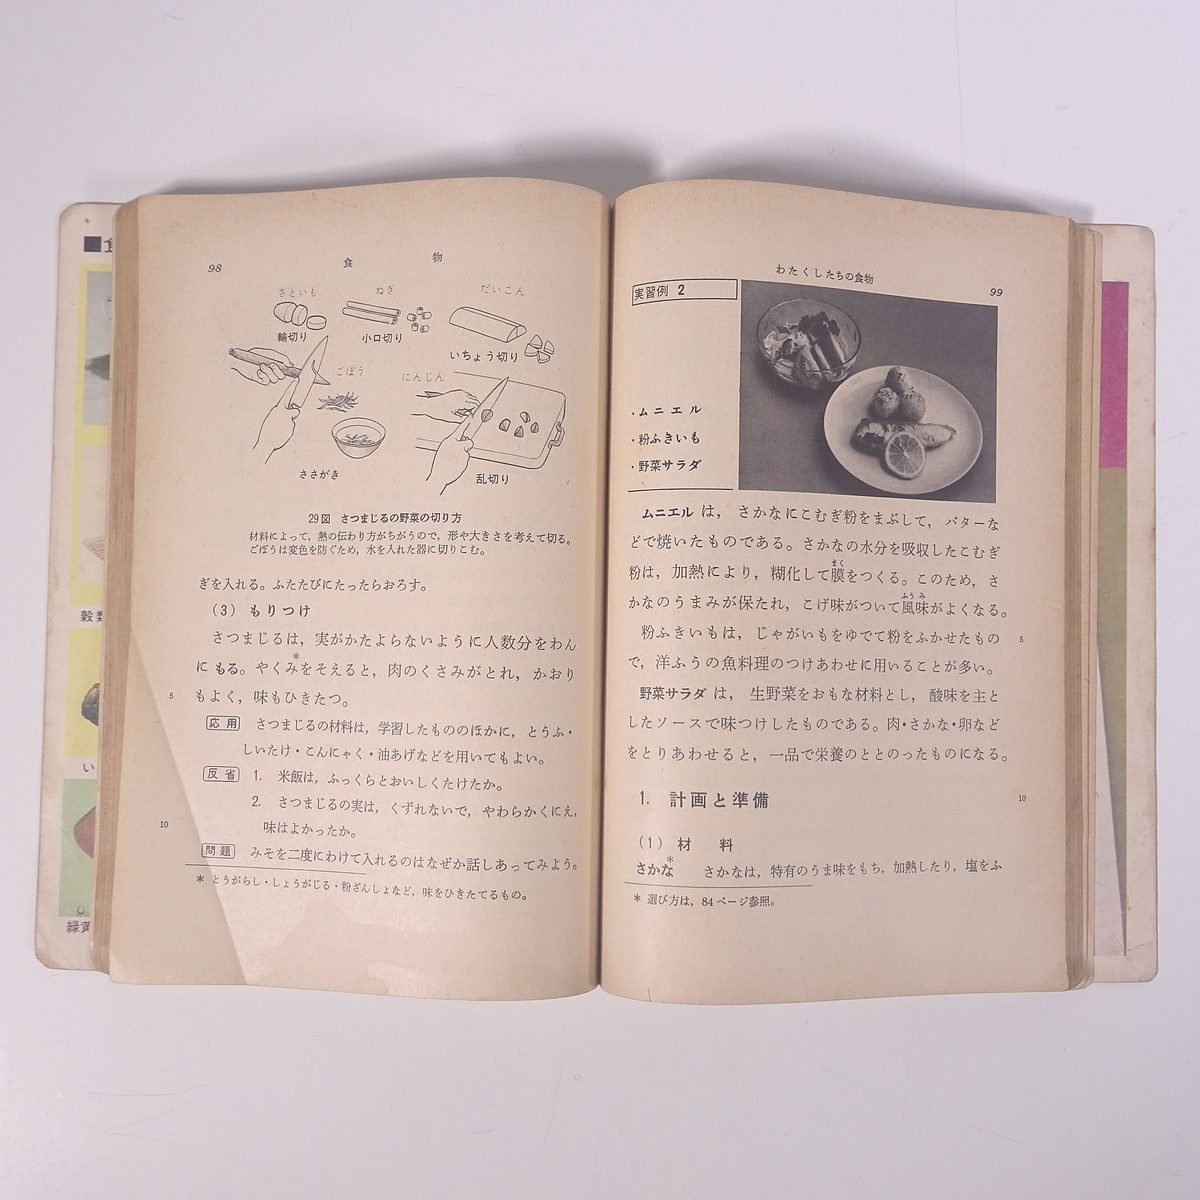 98
食物
さといも
ねぎ
だいこん
輪切り
小口切り
いちょう切り
ごぼう
にんじん
ささがき
乱切り
29図 さつまじるの野菜の切り方
材料によって，熱の伝わり方がちがうので，形や大きさを考えて切る。
ごぼうは変色を防ぐため，水を入れた器に切りこむ。
ぎを入れる。ふたたびにたったらおろす。
（3）もりつけ
さつまじるは，実がかたよらないように人数分をわん
にもる。やくみ*をそえると，肉のくさみがとれ，かおり
5
もよく，味もひきたつ。
応用 さつまじるの材料は，学習したもののほかに，とうふ・
しいたけ・こんにゃく・油あげなどを用いてもよい。
反省 1. 米飯は，ふっくらとおいしくたけたか。
2. さつまじるの実は，くずれないで，やわらかくにえ，
10
味はよかったか。
問題 みそを二度にわけて入れるのはなぜか話しあってみよう。
* とうがらし・しょうがじる・粉ざんしょなど，味をひきたてるもの。
わたくしたちの食物
99
実習例 2
・ムニエル
・粉ふきいも
・野菜サラダ
ムニエルは，さかなにこむぎ粉をまぶして，バターな
どで焼いたものである。さかなの水分を吸収したこむぎ
粉は，加熱により，糊化して膜をつくる。このため，さ
まく
かなのうまみが保たれ，こげ味がついて風味がよくなる。
ふうみ
粉ふきいもは，じゃがいもをゆでて粉をふかせたもの
5
で，洋ふうの魚料理のつけあわせに用いることが多い。
野菜サラダは，生野菜をおもな材料とし，酸味を主と
したソースで味つけしたものである。肉・さかな・卵など
をとりあわせると，一品で栄養のととのったものになる。
1. 計画と準備
10
（1）材料
さかな* さかなは，特有のうま味をもち，加熱したり，塩をふ
* 選び方は，84ページ参照。
■食
穀類
い
緑黄